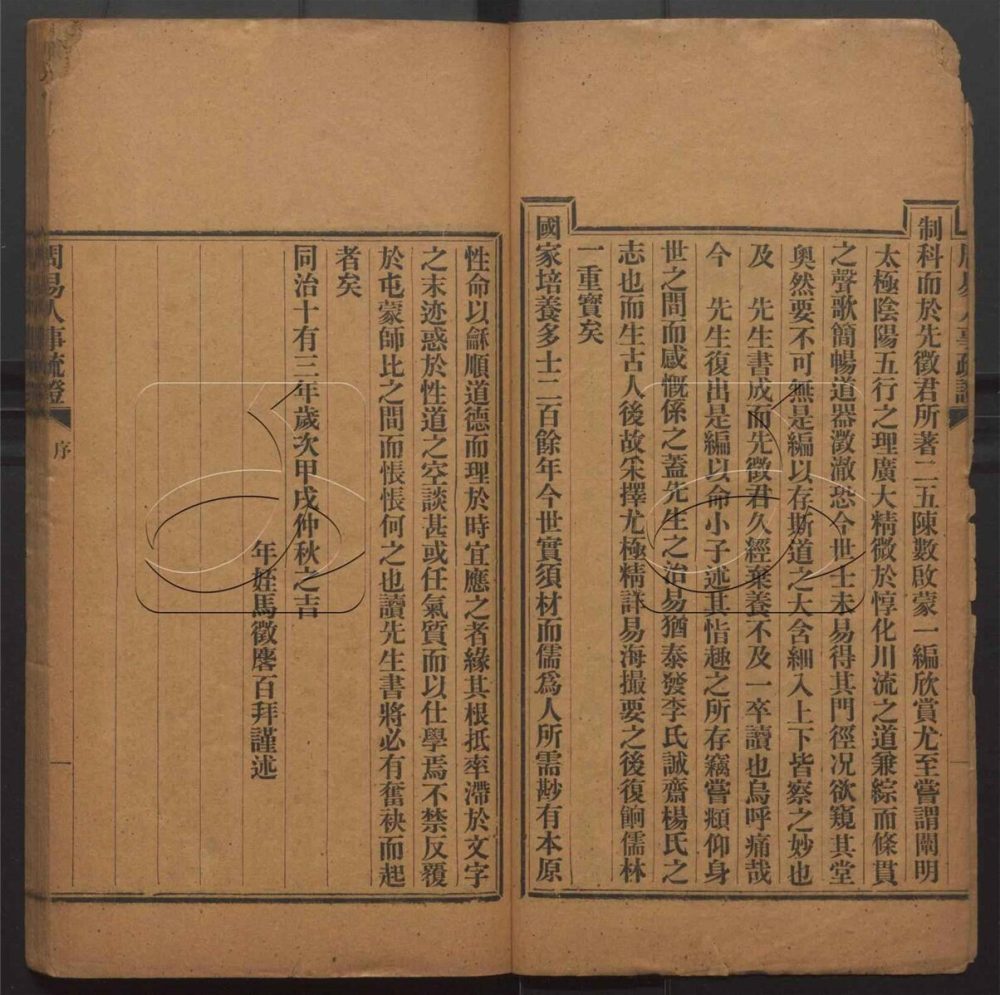 制科而於先徵君所著二五陳數啟蒙一編欣賞尤至嘗謂闡明
太極陰陽五行之理廣大精微於惇化川流之道兼綜而條貫
之聲歌簡暢道器澂澈恐今世士未易得其門徑况欲窺其堂
奧然要不可無是編以存斯道之大含細入上下皆察之妙也
及　先生書成而先徵君久經棄養不及一卒讀也烏呼痛哉
今　先生復出是編以命小子述其恉趣之所存竊嘗頫仰身
世之間而感慨係之蓋先生之治易猶泰發李氏誠齋楊氏之
志也而生古人後故采擇尤極精詳易海撮要之後復餉儒林
一重寶矣
國家培養多士二百餘年今世實須材而儒爲人所需尠有本原
性命以龢順道德而理於時宜應之者緣其根抵率滯於文字
之末迹惑於性道之空談甚或任氣質而以仕學焉不禁反覆
於屯蒙師比之間而悵悵何之也讀先生書將必有奮袂而起
者矣
同治十有三年歲次甲戌仲秋之吉
年姪馬徵麐百拜謹述
周易人事疏證
序